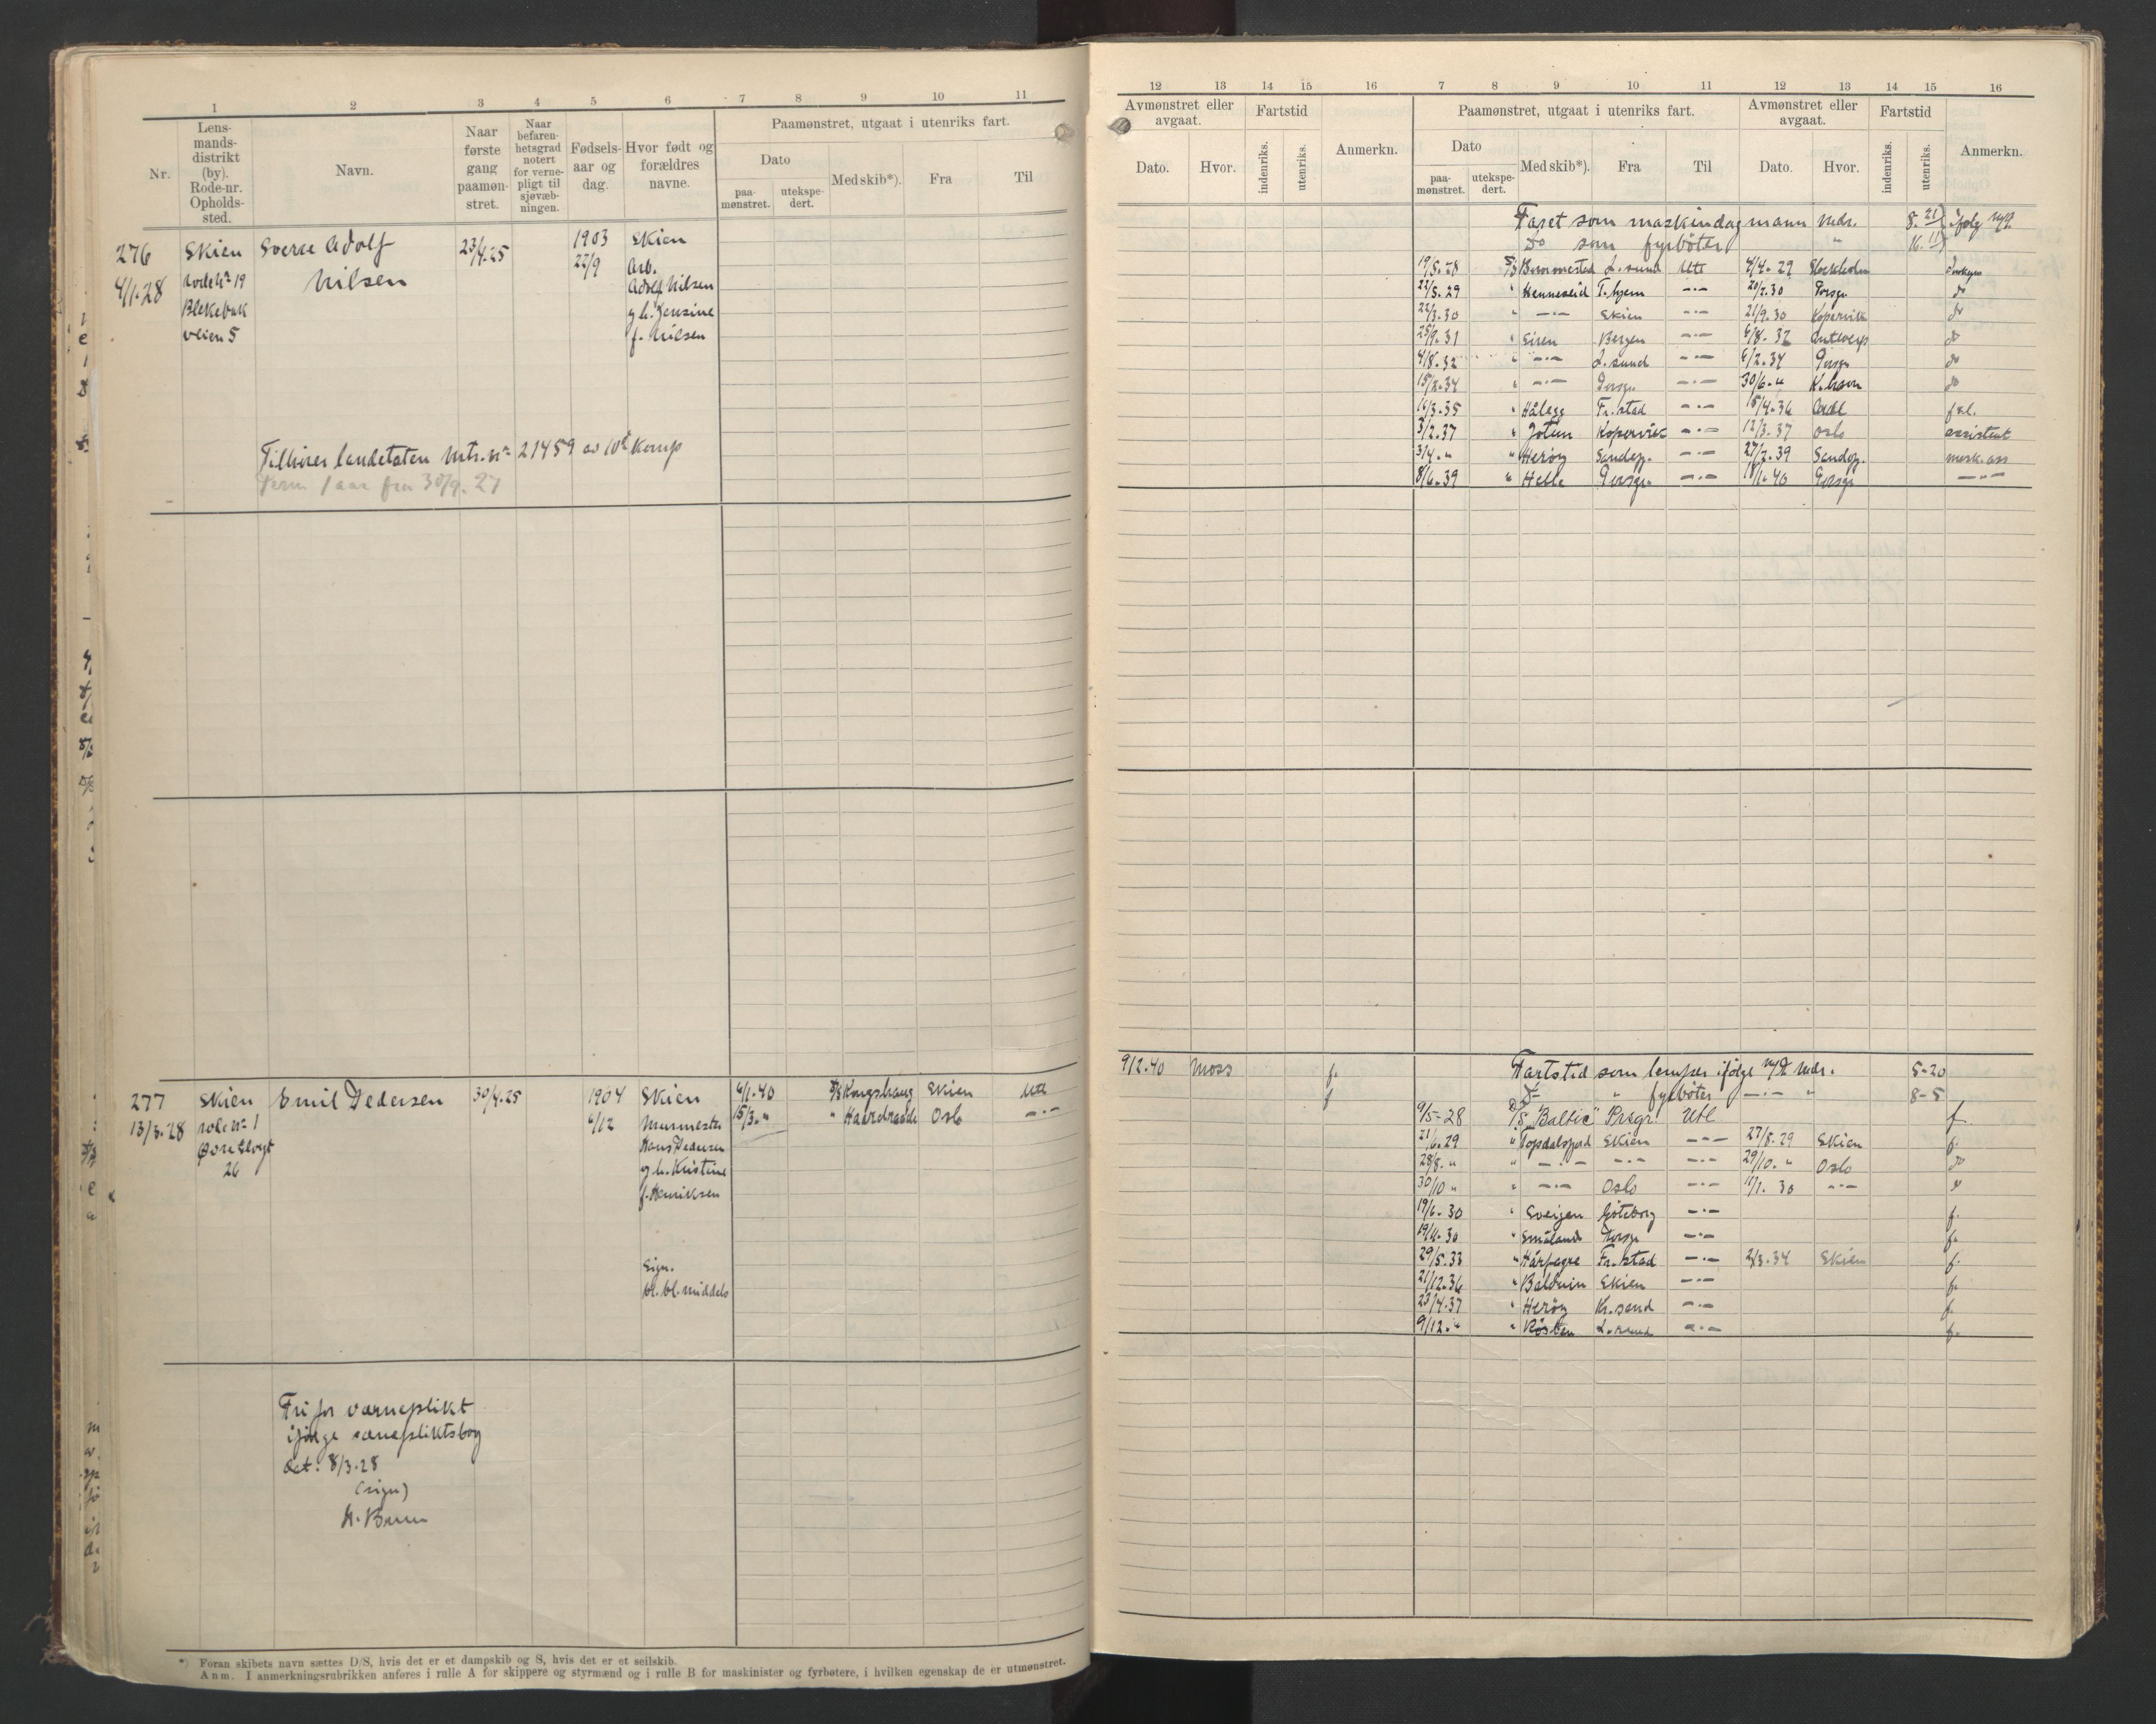 1 2 3 4 5 6 7 8 9 10 11
Nr. Lensmandsdistrikt (by). Rode-nr. Opholdssted. Navn. Naar første gang paamønstret. Naar befarenhetsgrad notert for vernepligt til sjøvæbningen. Fødselsaar og dag. Hvor født og forældres navne.
Paamønstret, utgaat i utenriks fart.
Dato Med skib*). Fra Til
paamønstret. utekspedert.
276 Skien Sverre Adolf 23/4.25 1903 Skien
4/1.28 rode No 19 Nilsen 22/9 Arb.
Adolf Nilsen
veien 5 g.h. Jensine
f. Nilsen
Tilhører landetaten Mtr. nr 21459 av 10d Komp
Perm 1 aar fra 30/9.27
277 Skien Emil Pedersen 30/4.25 1904 Skien 6/1.40 D/S Kongshaug Skien Utl
13/3.28 rode No 1 6/12 Murmester 15/3." " Haardraade Oslo -"-
Hans Pedersen
26 g.h. Kristine
f. Henriksen
Sign.
bl. bl. middels
Fri for værneplikt
ifølge værnepliktsbog
dat: 8/3.28
(sign)
*) Foran skibets navn sættes D/S, hvis det er et dampskib og S, hvis det er et seilskib.
Anm. I anmerkningsrubrikken anføres i rulle A for skippere og styrmænd og i rulle B for maskinister og fyrbøtere, i hvilken egenskap de er utmønstret.
12 13 14 15 16 7 8 9 10 11 12 13 14 15 16
Avmønstret eller avgaat. Fartstid Anmerkn. Paamønstret, utgaat i utenriks fart. Avmønstret eller avgaat. Fartstid Anmerkn.
Dato. Hvor. indenriks. utenriks. Dato Med skib*). Fra Til Dato. Hvor. indenriks. utenriks.
paamønstret. utekspedert.
Faret som maskindagmann Mdr. 8-21 ifølg
Do som fyrbøter " 16.11
19/5.28 D/S Brommestad L.sund Utl 4/4.29 Stockholm
22/5.29 " Henneseid T.hjem -"- 20/2.30 Porsgr do
22/3.30 " -"- Skien -"- 21/9.30 Kopervik do
25/9.31 " Siren Bergen -"- 6/8.32 Antwerp do
4/8.32 " -"- L.sund -"- 6/2.34 Porsgr do
15/2.34 " -"- Porsgr -"- 30/6." K.havn do
16/3.35 " Hålegg Fr.stad -"- 15/4.36
3/2.37 " Jotun Kopervik -"- 12/3.37 Oslo assistent
3/4." " Herøy Sandefj. -"- 27/2.39 Sandefj. mask.ass
8/6.39 " Helle Porsgr. -"- 18/1.40 Porsgr -"-
9/2.40 Moss f. Fartstid som lemper ifølge Mdr. 5-20
f Do " fyrbøter -"- " 8-5
9/5-28 D/S "Baltic" Prsgr. Utl f
21/6.29 " Topdalsfjord Skien -"- 27/8.29 Skien f.
28/8." " -"- -"- -"- 29/10." Oslo do
30/10 " " -"- Oslo -"- 11/1.30 -"- do
19/6.30 " Sveigen Göteborg -"- f.
19/11.30 " Småland Porsgr -"- f.
29/5.33 " Hårfagre Fr.stad -"- 2/3.34 Skien f.
21/12.36 " Balduin Skien -"- f.
23/4.37 " Herøy Kr.sand -"- f
9/12." " Røsten L.sund -"- f.